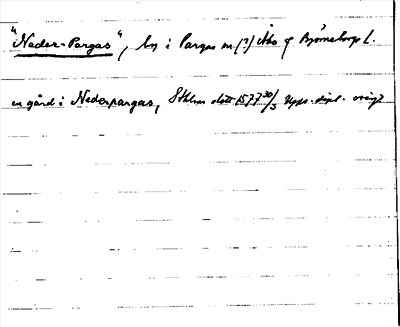 "Neder-Pargas", by i Pargas sn (?) Åbo o Björneborgs l.
en gård i Nederpargas, Sthlms slott 1577 30/3 Upps. dipl. orig?